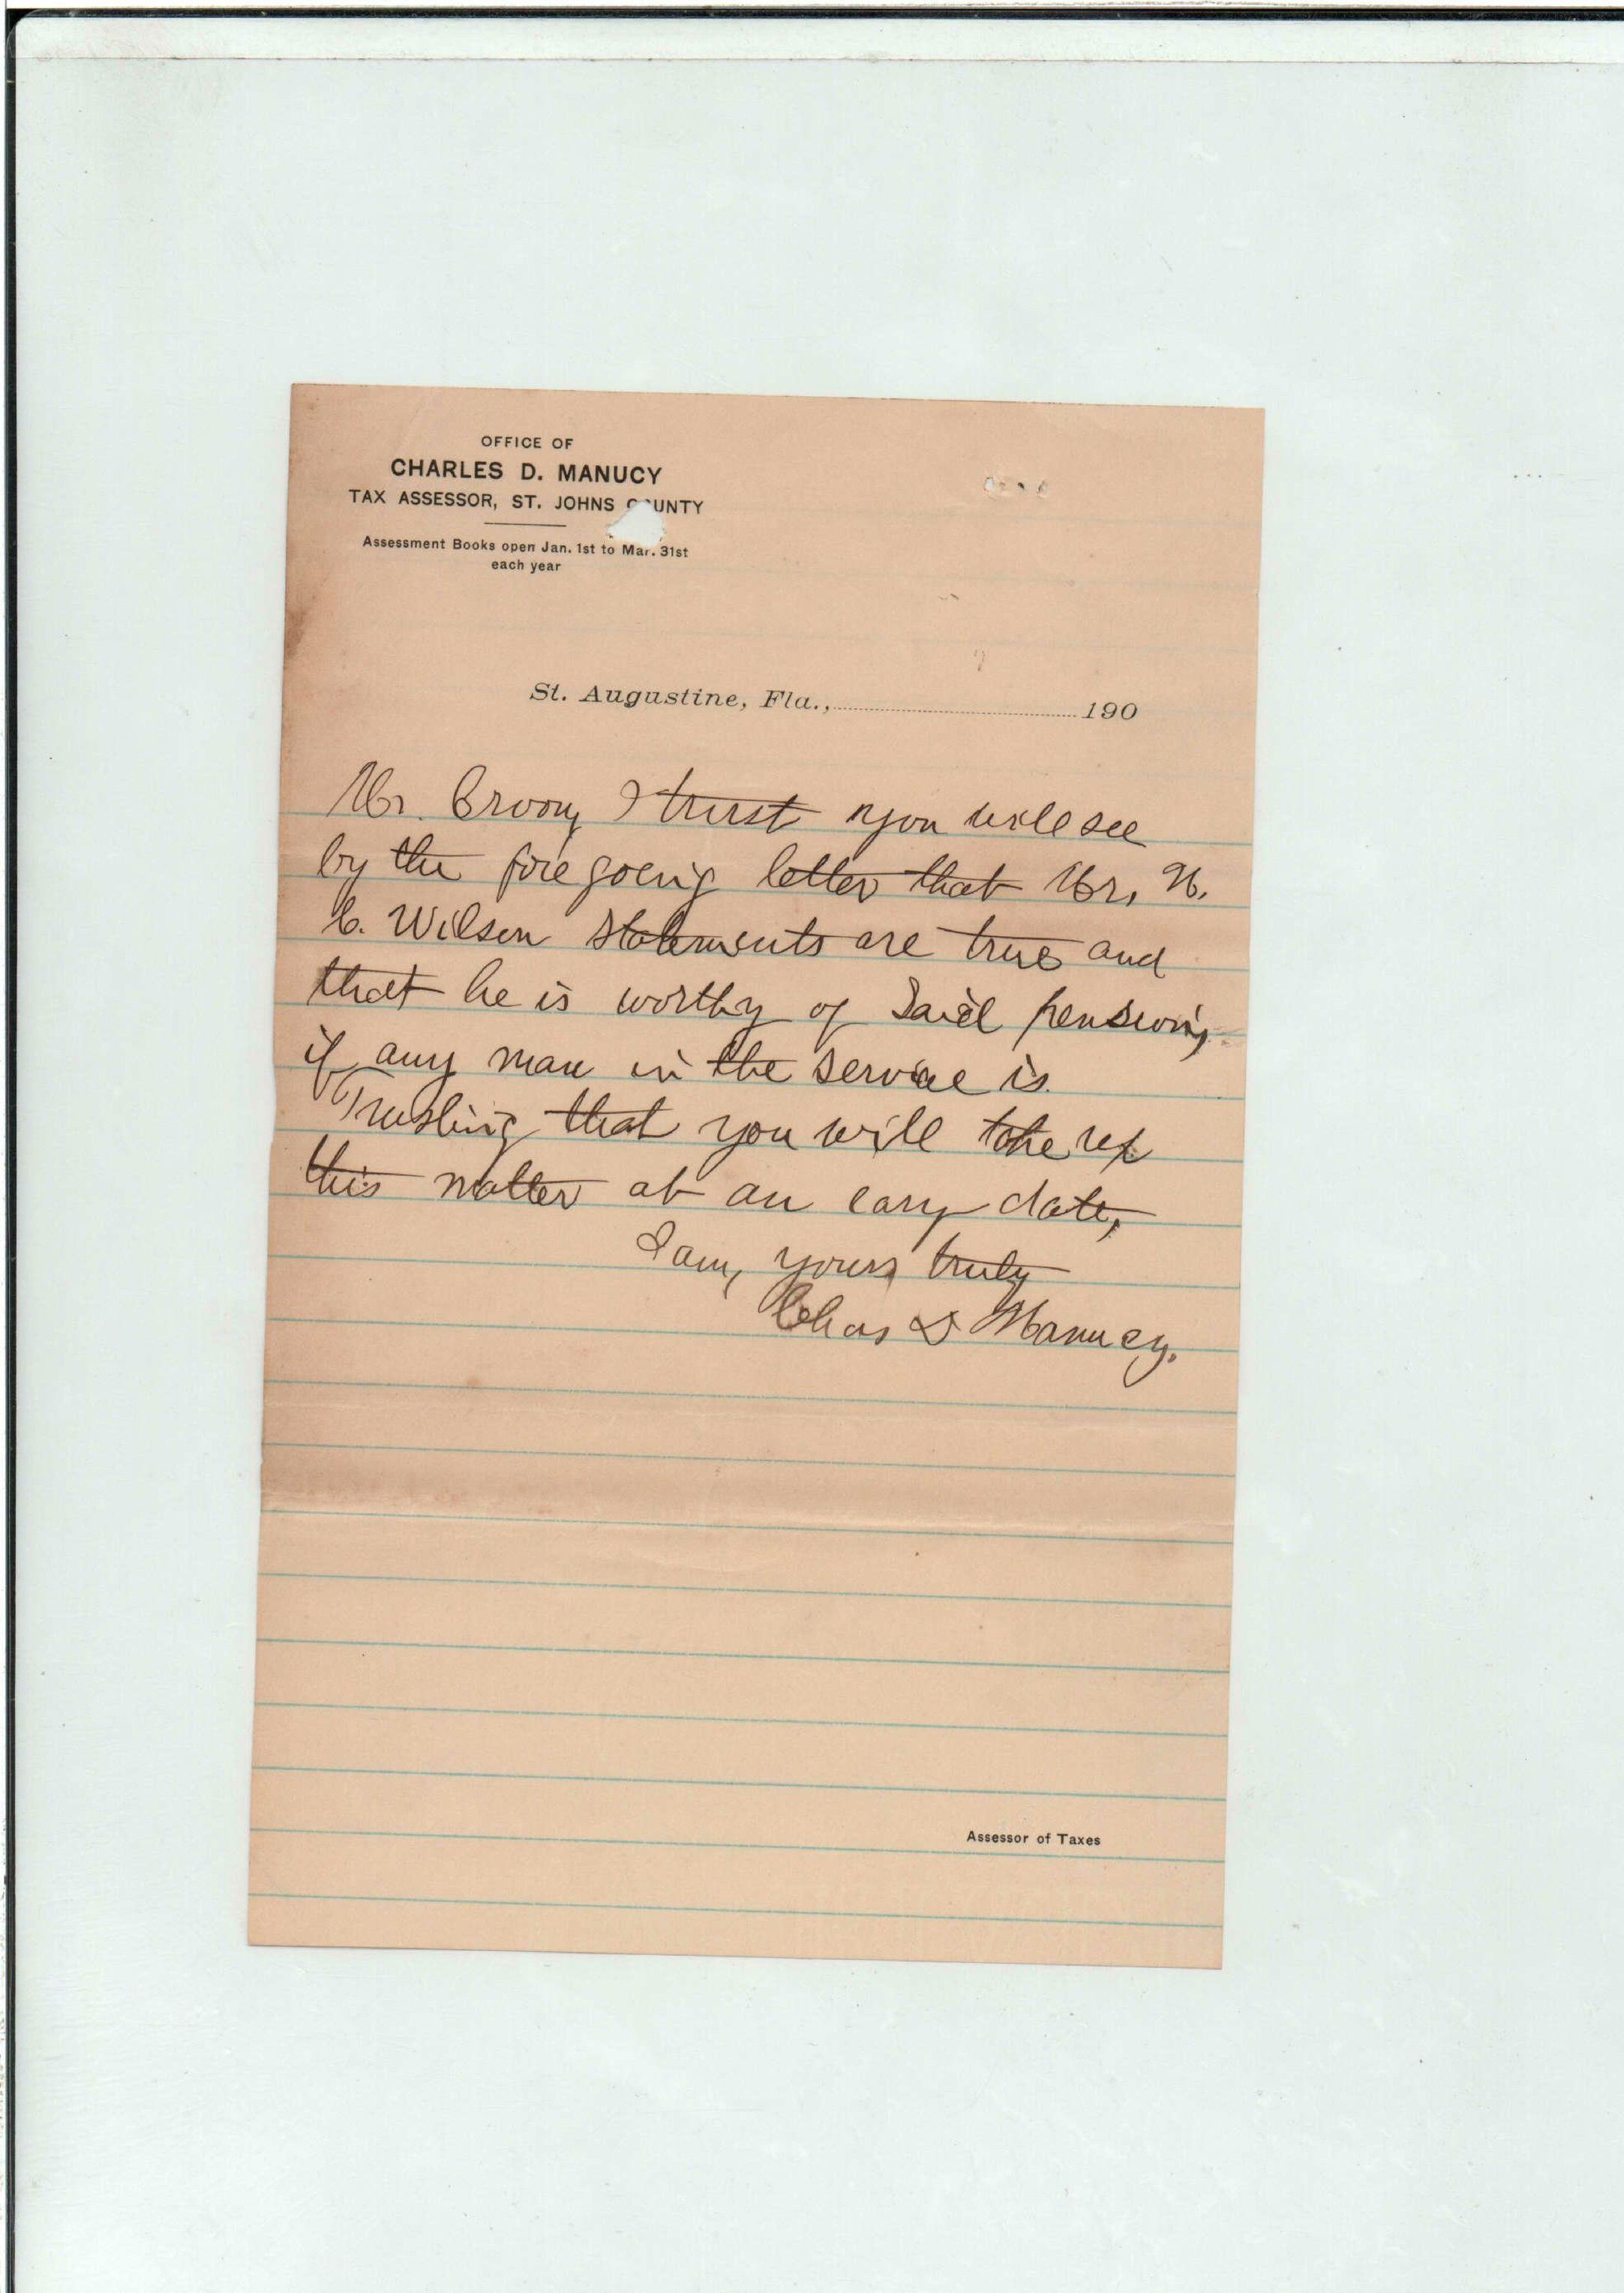 OFFICE OF
CHARLES D. MANUCY
TAX ASSESSOR, ST. JOHNS COUNTY
Assessment Books open Jan. 1st to Mar. 31st
each year
St. Augustine, Fla., 190
Mr. I trust you will see
by the foregoing letter that Mr.
C. Wilson statements are true and
that he is worthy of said pension,
if any man in the service is.
Trusting that you will take up
this matter at an eary date,
I am, yours truly
Chas D Manucy.
Assessor of Taxes